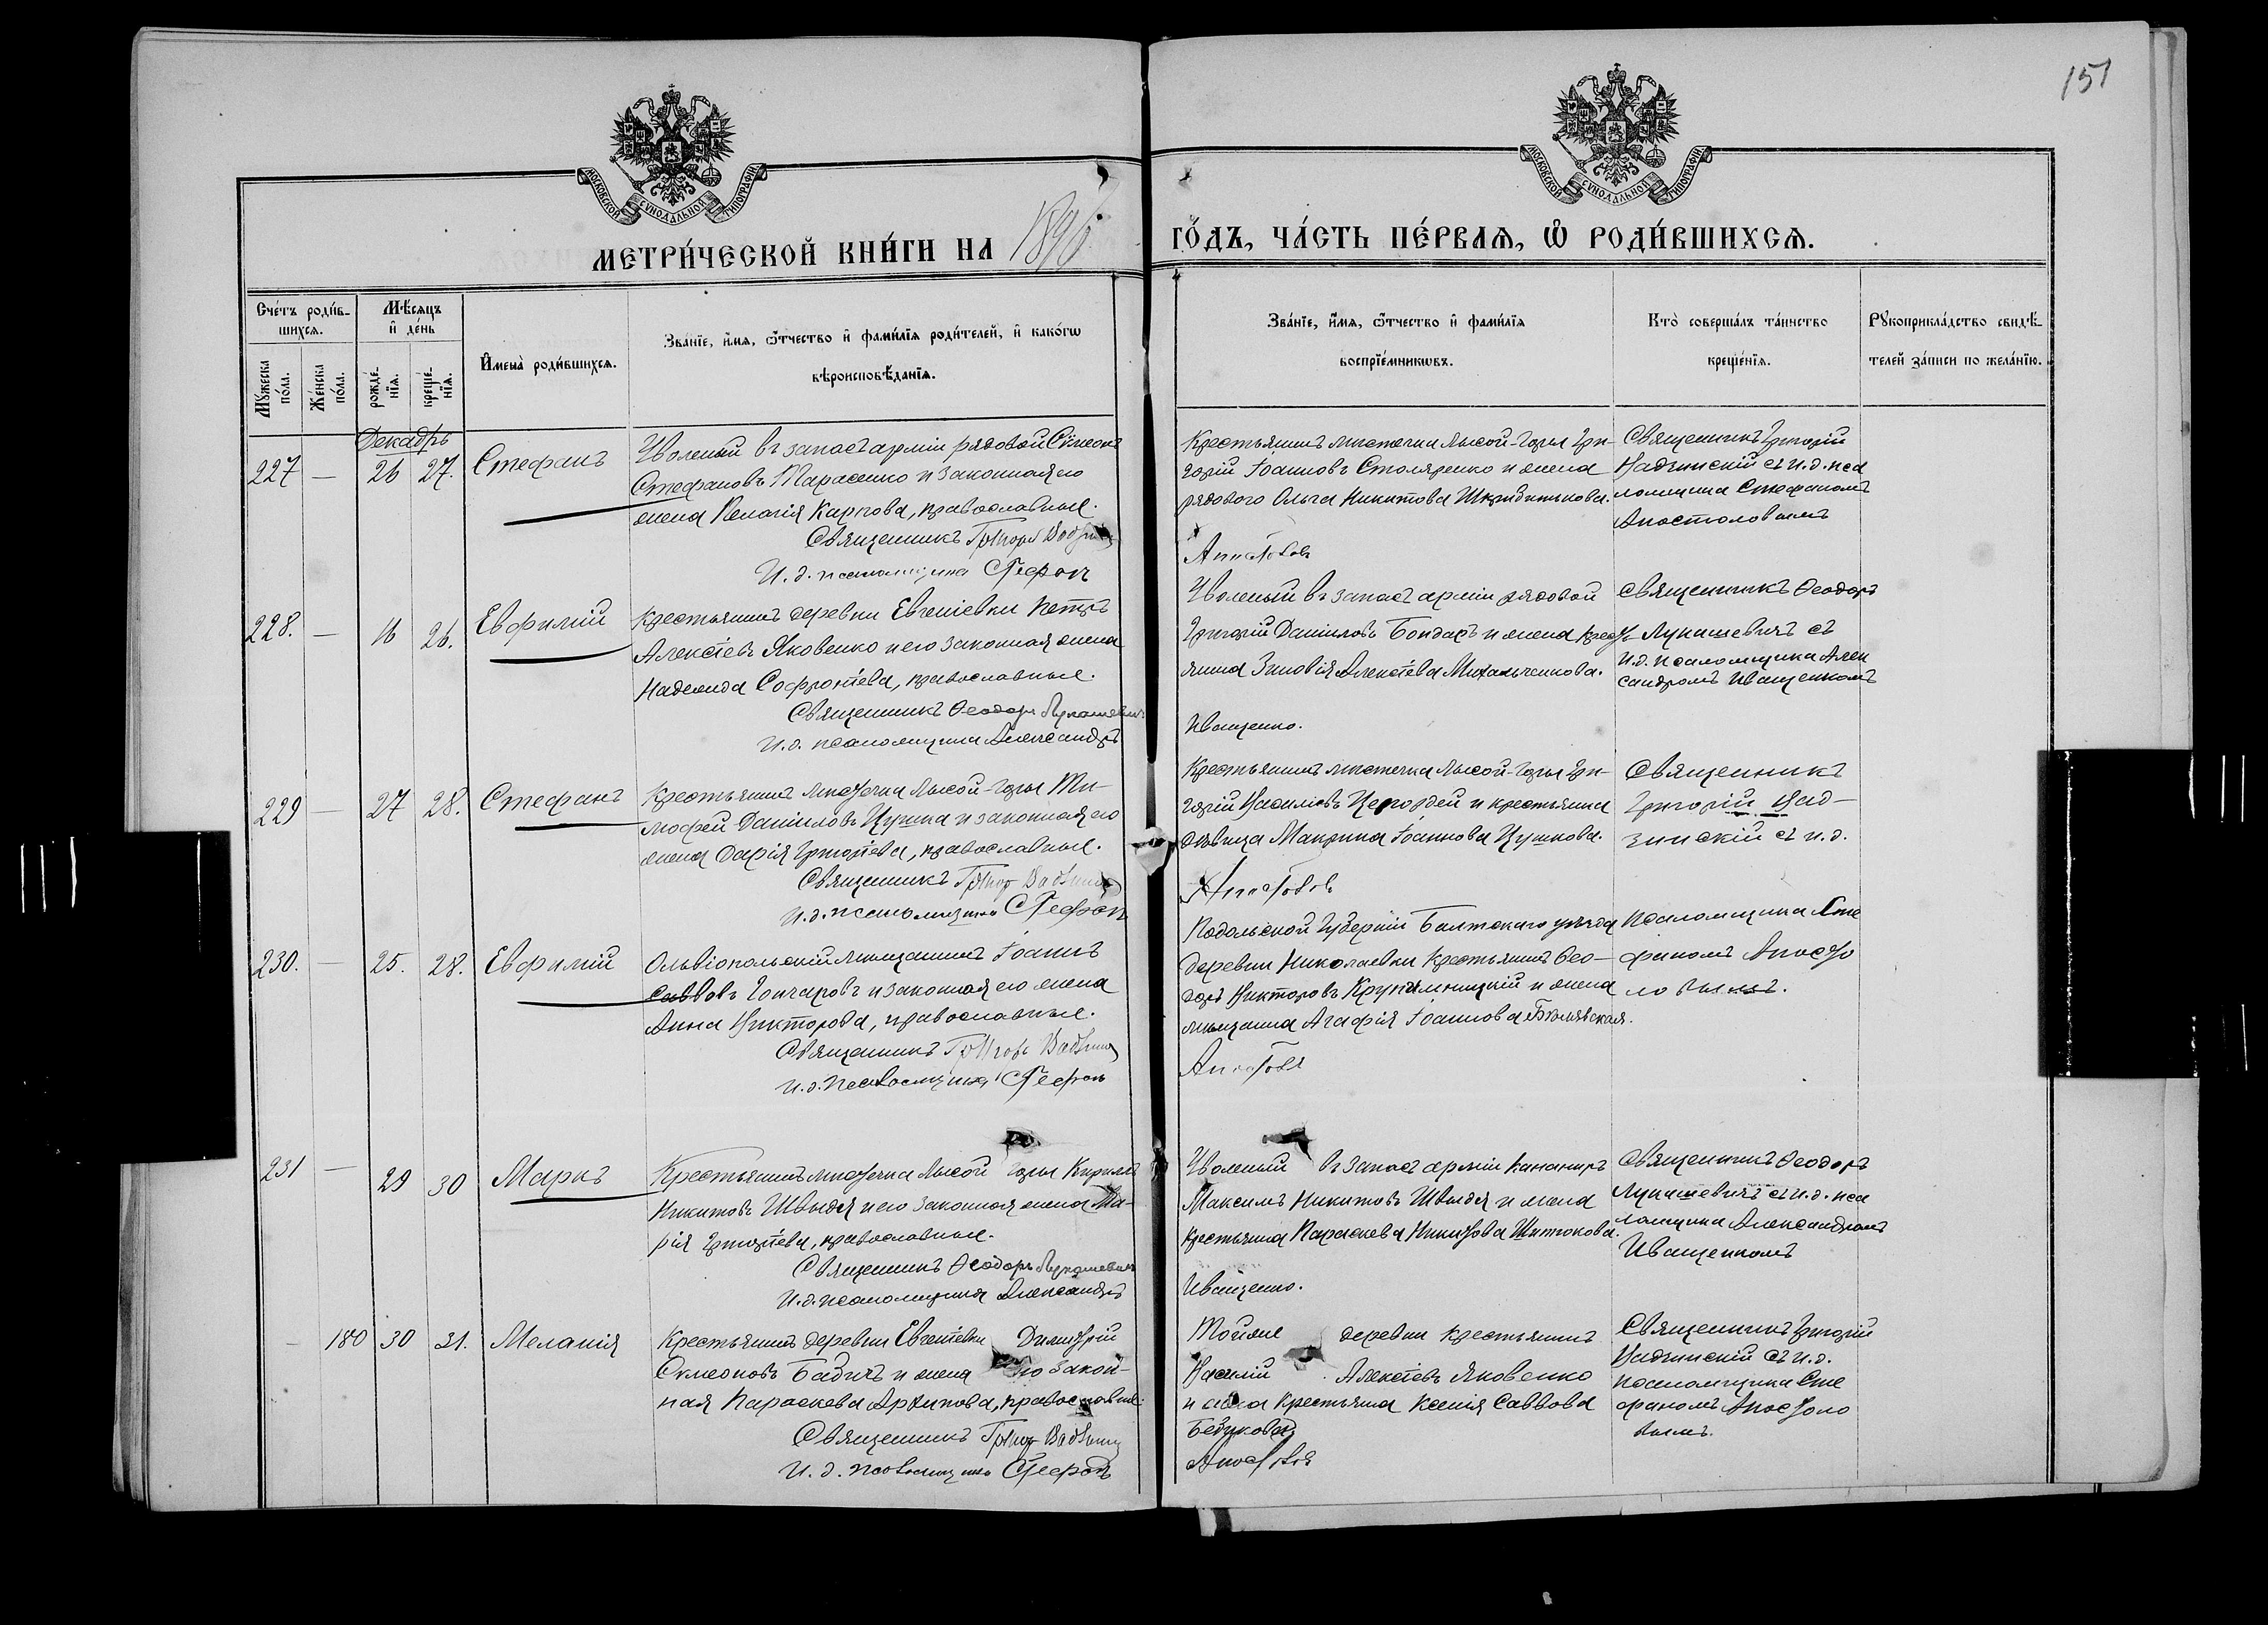 151
МОСКОВСКОЙ СУНОДАЛЬНОЙ ТИПОГРАФІИ
МОСКОВСКОЙ СУНОДАЛЬНОЙ ТИПОГРАФІИ
МЕТРИ́ЧЕСКОЙ КНИ́ГИ НА 1896 ГО́ДЪ, ЧА́СТЬ ПЕ́РВАѦ, Ѡ҆ РОДИ́ВШИХСѦ.
Сче́тъ роди́в-
шихсѧ.
Мꙋ́жеска по́ла.
Же́нска по́ла.
Мѣ́сѧцъ
и҆ де́нь
рожде́-
нїѧ.
креще́-
нїѧ.
И҆мена̀ роди́вшихсѧ.
Зва́нїе, и҆́мѧ, ѻ҆́тчество и҆ фами́лїѧ роди́телей, и҆ како́гѡ
вѣроисповѣ́данїѧ.
Зва́нїе, и҆́мѧ, ѻ҆́тчество и҆ фами́лїѧ
воспрїе́мникѡвъ.
Кто̀ соверша́лъ та́инство
креще́нїѧ.
Рꙋкоприкла́дство свидѣ́-
телей за́писи по жела́нїю.
Декабрь
227 — 26 27. Стефанъ
Уволеный въ запасъ арміи рядовой Сѵмеонъ
Стефановъ Тарасенко и законная его
жена Пелагія Карпова, православные.
Священникъ Григорій
И. д. псаломщика Стефанъ
Крестьянинъ мѣстечка Лысой-Горы Гри-
горій Іоанновъ Столяренко и жена
рядового Ольга Никитова
Апостоловъ
Священникъ Григорій
Вадзинскій съ и. д. пса
ломщика Стефаномъ
Апостоловымъ
228. — 16 26. Евфимій
Крестьянинъ деревни Евгеніевки Петръ
Алексѣевъ Яковенко и его законная жена
Надежда Софроніева, православные.
Священникъ Ѳеодоръ Лукашевичъ
И. д. псаломщика Александръ
Уволеный въ запасъ арміи рядовой
Григорій Даніиловъ Бондарь и жена крест-
янина Зиновія Алексѣева Михальченкова.
Иващенко.
Священникъ Ѳеодоръ
Лукашевичъ съ
И. д. псаломщика Алек
сандромъ Иващенкомъ
229 — 27 28. Стефанъ
Крестьянинъ мѣстечка Лысой-Горы Ти-
мофей Даніиловъ Цушка и законная его
жена Дарія Григоріева, православные.
Священникъ Григор
И. д. псаломщика Стефанъ
Крестьянинъ мѣстечка Лысой-Горы Гри-
горій Василіевъ и крестьянка
дѣвица Макрина Іоаннова Цушкова.
Апостоловъ
Священникъ
Григорій Вад-
зинскій съ и. д.
230. — 25. 28. Евфимій
Ольвіопольскій мѣщанинъ Іоаннъ
Саввовъ Гончаровъ и законная его жена
Анна Викторова, православные.
Священникъ Григорій
И. д. псаломщика Стефанъ
Подольской губерніи Балтскаго уѣзда
деревни Николаевки крестьянинъ Ѳео-
доръ Викторовъ и жена
мѣщанина Агафія Іоаннова Бѣлявская.
Апостоловъ
псаломщика Сте
фаномъ Апосто
ловымъ.
231 — 29 30 Маркъ
Крестьянинъ мѣстечка Лысой Горы Кириллъ
Никитовъ Швыдя и его законная жена Ма-
рія Григоріева, православные.
Священникъ Ѳеодоръ Лукашевичъ
И. д. псаломщика Александръ
Уволеный въ запасъ арміи канониръ
Максимъ Никитовъ Швыдя и жена
крестьянина Параскева Никитова
Иващенко.
Священникъ Ѳеодоръ
Лукашевичъ съ и. д. пса
ломщика Александромъ
Иващенкомъ
— 180 30 31. Меланія
Крестьянинъ деревни Евгеніевки Димитрій
Сѵмеоновъ Бабичъ и жена его закон-
ная Параскева Архипова, православные.
Священникъ Григор
И. д. псаломщика Стефанъ
Той же деревни крестьянинъ
Василій Алексѣевъ Яковенко
и жена крестьянина Ксенія Саввова
Апостоловъ
Священникъ Григорій
Вадзинскій съ и. д.
псаломщика Сте
фаномъ Апостоло
вымъ.